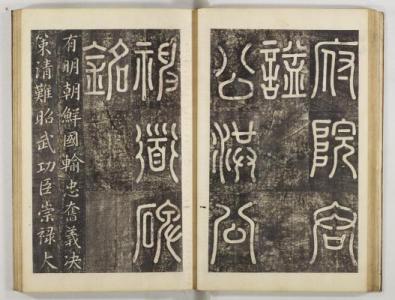 府院君
諡
公洪公
神道碑
銘
有明朝鮮國輸忠奮義决
策清難昭武功臣崇祿大